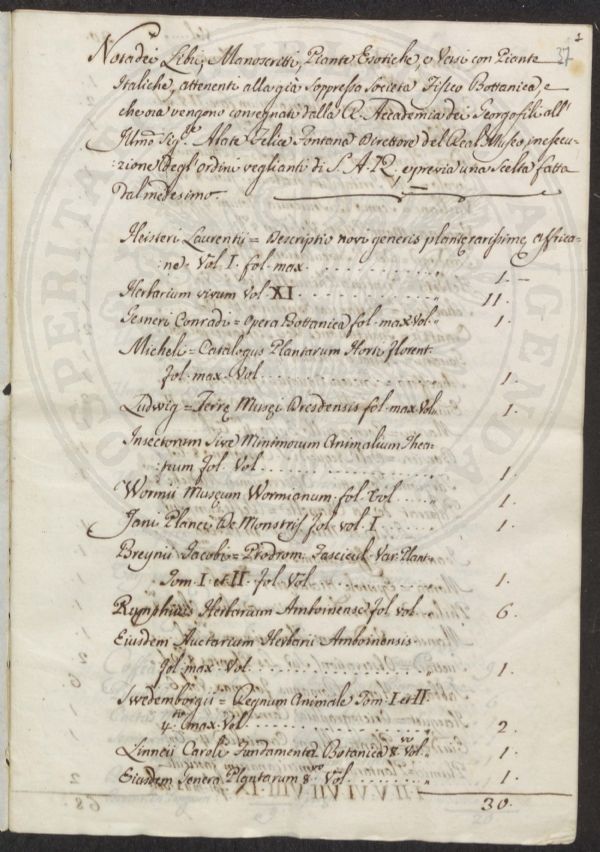 37
Nota dei Libri, Manoscritti, Piante Esotiche, e Vasi con Piante
Italiche, attenenti alla già Soppressa Società Fisico Bottanica, e
che ora vengono consegnati dalla R. Accademia dei Georgofili all'
Illmo Sigre. Abate Felice Fontana Direttore del Real Museo, in esecu-
:zione degl'ordini veglianti di S. A. R., e previa una Scelta fatta
dal medesimo.
Heisteri Laurentii = Descriptio novi generis plantę rarissimę Africa=
:nę Vol. I. fol. max. 1.
Herbarium vivum Vol. XI 11.
Gesneri Conradi = Opera Bottanica fol. max Vol. 1.
Micheli = Catalogus Plantarum Horti florent.
fol. max. Vol. 1.
Ludwig = Terrę Musęi Dresdensis fol. max Vol. 1.
Insectorum Sive Minimorum Animalium Thea=
:trum fol. Vol. 1.
Wormii Musęum Wormianum. fol. Vol. 1.
Jani Planci De Monstris fol. vol. I 1.
Breynii Jacobi = Prodrom. Fascicul. Var. Plant.
Tom. I. et II. fol. Vol. 1.
Rumphius Herbarium Amboinense fol. vol. 6.
Eiusdem Auctarium Herbarii Amboinensis
fol. max. Vol. 1.
Swedemborgii = Regnum Animale Tom. I. et II.
4.to max. Vol. 2.
Linnei Caroli Fundamenta Botanica 8.vo Vol. 1.
Eiusdem Genera Plantarum 8.vo Vol. 1.
30.